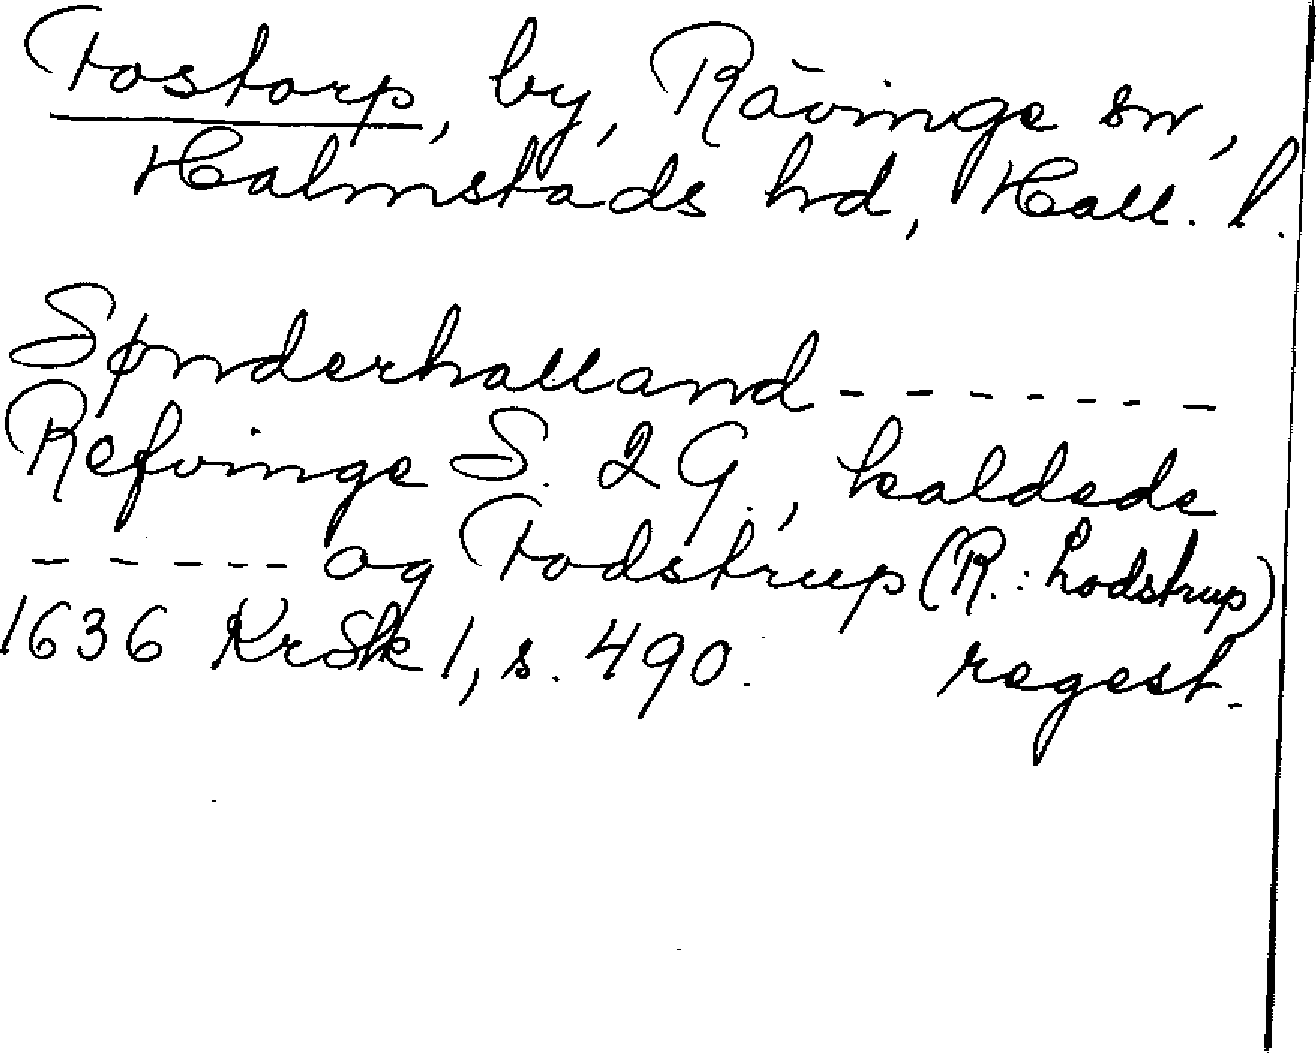 Tostorp, by, Rävinge sn,
Halmstads hd, Hall. l.
Sønderhalland - - - - - - -
Refvinge S. 2 G., kaldede
- - - - - - og Todstrup (R.: Lodstrup)
1636 KrSk 1, s. 490. regest.